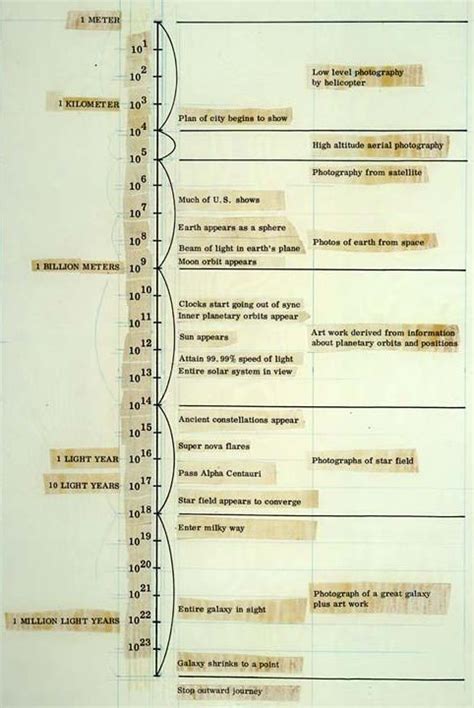 1 METER
10¹
10²
Low level photography
by helicopter
1 KILOMETER
10³
Plan of city begins to show
10⁴
High altitude aerial photography
10⁵
Photography from satellite
10⁶
Much of U.S. shows
10⁷
Earth appears as a sphere
10⁸
Photos of earth from space
Beam of light in earth's plane
1 BILLION METERS
10⁹
Moon orbit appears
10¹⁰
Clocks start going out of sync
Inner planetary orbits appear
10¹¹
Sun appears
Art work derived from information
about planetary orbits and positions
10¹²
Attain 99.99% speed of light
10¹³
Entire solar system in view
10¹⁴
Ancient constellations appear
10¹⁵
Super nova flares
1 LIGHT YEAR
10¹⁶
Photographs of star field
Pass Alpha Centauri
10 LIGHT YEARS
10¹⁷
Star field appears to converge
10¹⁸
Enter milky way
10¹⁹
10²⁰
10²¹
Photograph of a great galaxy
plus art work
Entire galaxy in sight
1 MILLION LIGHT YEARS
10²²
10²³
Galaxy shrinks to a point
Stop outward journey